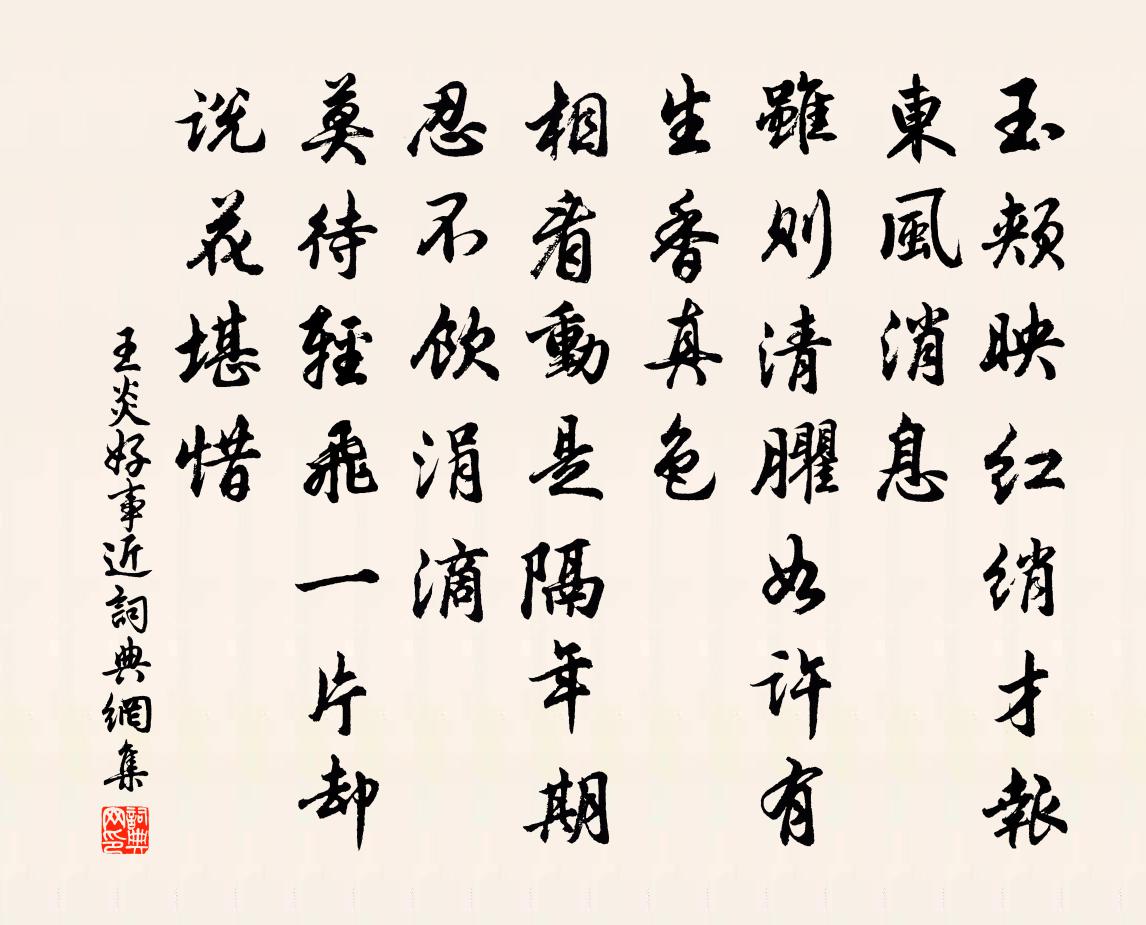 玉頰映红绡才報
東風消息
雖则清臞如许有
生香真色
相看動是隔年期
忍不飲涓滴
莫待輕飛一片却
说花堪惜
王炎好事近詞典網集
詞典网印